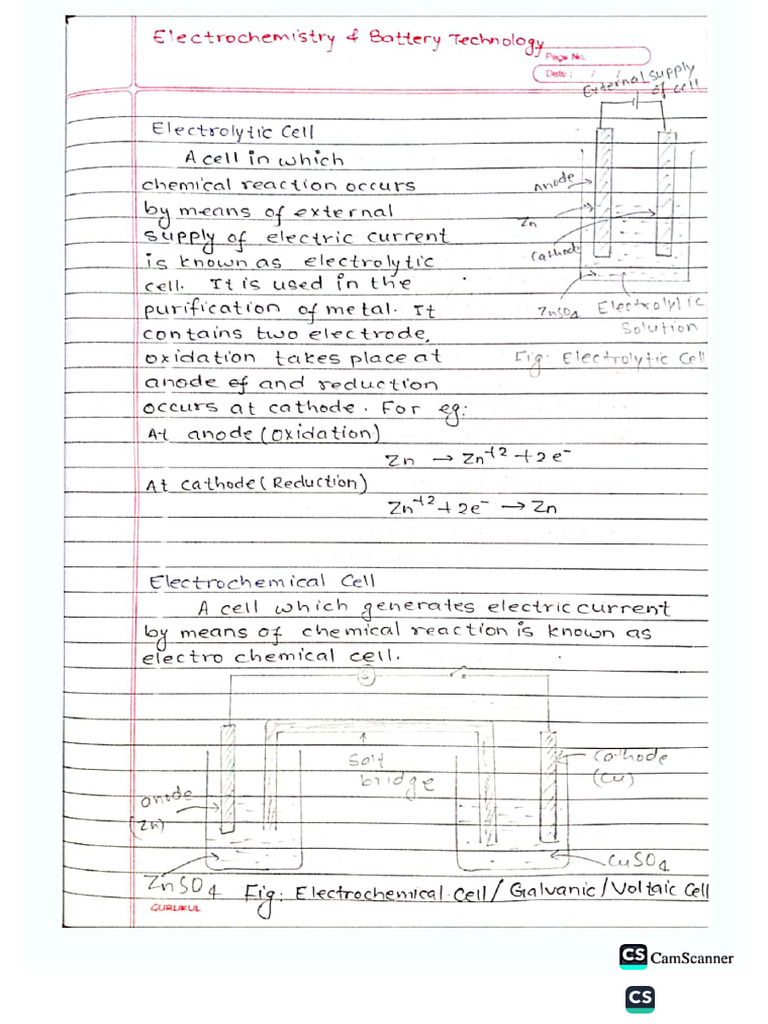 Electrochemistry & Battery Technology
Page No.
Date : / /
External supply
of cell
Electrolytic Cell
A cell in which
chemical reaction occurs
by means of external
supply of electric current
is known as electrolytic
cell. It is used in the
purification of metal. It
contains two electrode,
oxidation takes place at
anode of and reduction
occurs at cathode. For eg:
anode
Zn
Cathode
ZnSO4
Electrolytic
Solution
Fig: Electrolytic Cell
At anode (Oxidation)
Zn → Zn+2 + 2e-
At cathode (Reduction)
Zn+2 + 2e- → Zn
Electrochemical Cell
A cell which generates electric current
by means of chemical reaction is known as
electro chemical cell.
G
Salt
bridge
Cathode
(Cu)
anode
(Zn)
CuSO4
ZnSO4
Fig: Electrochemical Cell/Galvanic/Voltaic Cell
GURUKUL
CS CamScanner
CS